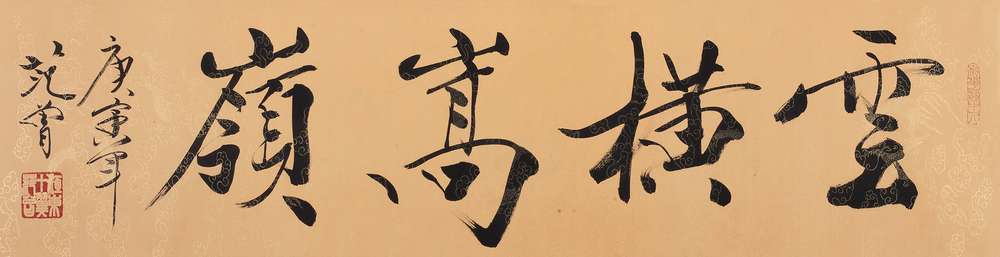 雲橫嵩嶺
庚寅年
范曾